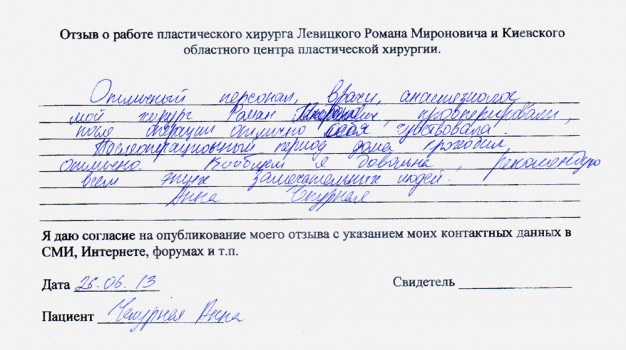 Отзыв о работе пластического хирурга Левицкого Романа Мироновича и Киевского
областного центра пластической хирургии.
Отличный персонал, врачи, анастезиолог
мой хирург Роман Миронович, прооперировали,
после операции отлично себя чувствовала.
Послеоперационный период дома проходил
отлично. Вообщем я довольна, рекомендую
всем этих замечательных людей.
Анна Чепурная
Я даю согласие на опубликование моего отзыва с указанием моих контактных данных в
СМИ, Интернете, форумах и т.п.
Дата 26.06.13 Свидетель
Пациент Чепурная Анна